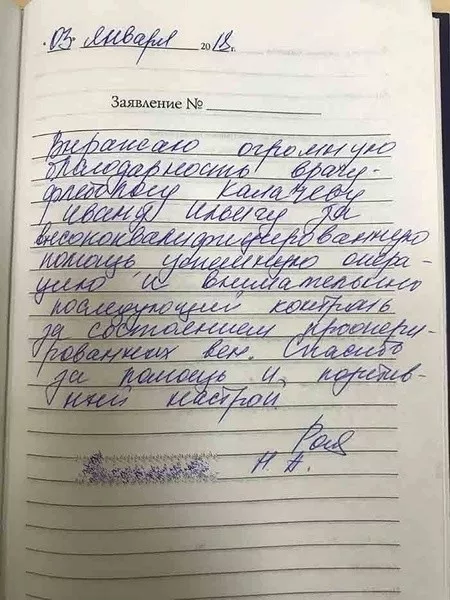 "03" января 2018 г.
Заявление №
Выражаю огромную
благодарность врачу-
флебологу Калачеву
Ивану Ильичу за
высококвалифицированную
помощь, успешную опера-
цию и внимательно
последующий контроль
за состоянием проопери-
рованных вен. Спасибо
за помощь и позитив-
ный настрой.
Н. А.